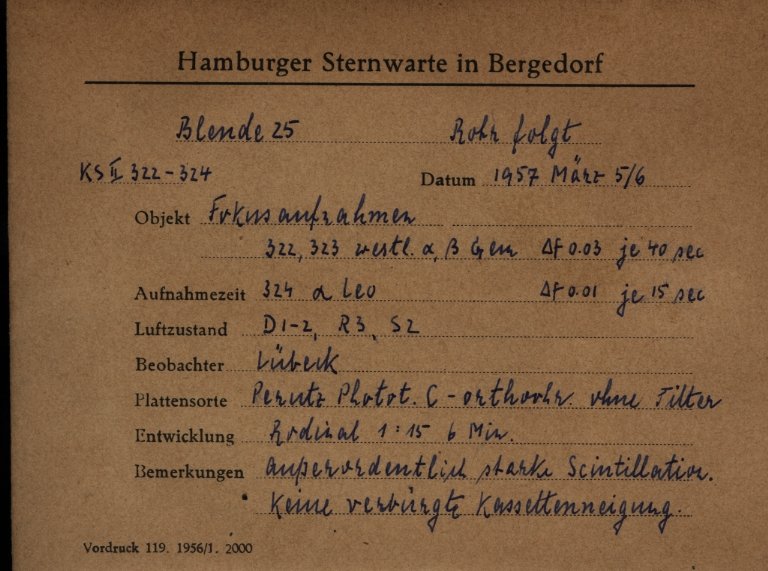 Hamburger Sternwarte in Bergedorf
Blende 25 Rohr folgt
KS II 322-324 Datum 1957 März 5/6
Objekt Fokusaufnahmen
322, 323 westl. α, β Gem Δf 0.03 je 40 sec
Aufnahmezeit 324 α Leo Δf 0.01 je 15 sec
Luftzustand D1-2, R3, S2
Beobachter Lübeck
Plattensorte Perutz Photot. C - orthochr. ohne Filter
Entwicklung Rodinal 1:15 6 Min.
Bemerkungen außerordentlich starke Scintillation.
Keine verbürgte Kassettenneigung.
Vordruck 119. 1956/1. 2000